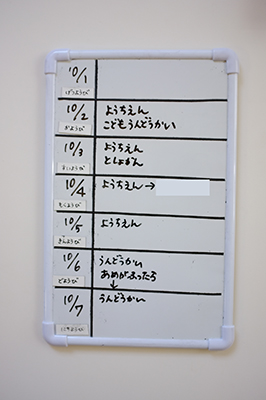 10/1
げつようび
10/2
ようちえん
こどもうんどうかい
かようび
10/3
ようちえん
としょかん
すいようび
10/4
ようちえん→
もくようび
10/5
ようちえん
きんようび
10/6
うんどうかい
あめがふったら
↓
どようび
10/7
うんどうかい
にちようび